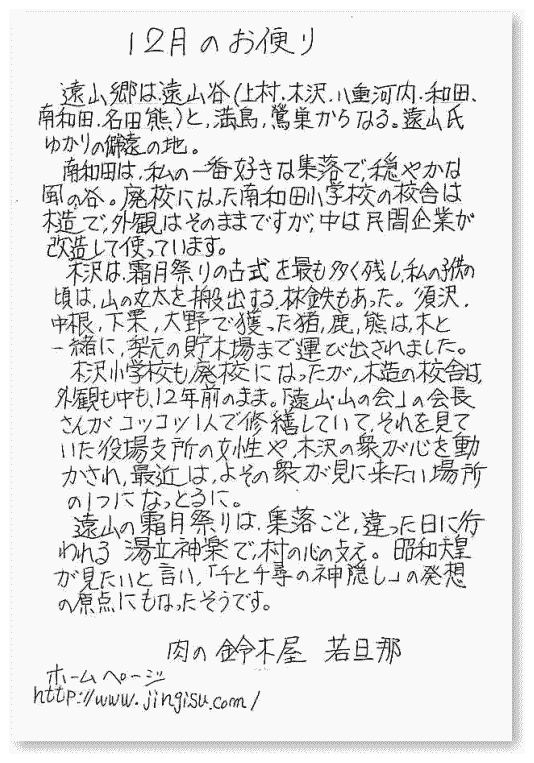 12月のお便り
遠山郷は、遠山谷(上村、木沢、八重河内、和田、
南和田、名田熊)と、満島、鶯巣からなる。遠山氏
ゆかりの僻遠の地。
南和田は、私の一番好きな集落で、穏やかな
風の谷。廃校になった南和田小学校の校舎は
木造で、外観はそのままですが、中は民間企業が
改造して使っています。
木沢は、霜月祭りの古式を最も多く残し、私の子供の
頃は、山の丸太を搬出する、林鉄もあった。須沢、
中根、下栗、大野で獲った猪、鹿、熊は、木と
一緒に、梨元の貯木場まで運び出されました。
木沢小学校も廃校になったが、木造の校舎は、
外観も中も、12年前のまま。「遠山・山の会」の会長
さんがコツコツ1人で修繕していて、それを見て
いた役場支所の女性や、木沢の衆が心を動
かされ、最近は、よその衆が見に来たい場所
の1つになっとるに。
遠山の霜月祭りは、集落ごと、違った日に行
われる 湯立神楽で、村の心の支え。昭和天皇
が見たいと言い、「千と千尋の神隠し」の発想
の原点にもなったそうです。
肉の鈴木屋 若旦那
ホームページ
http://www.jingisu.com/